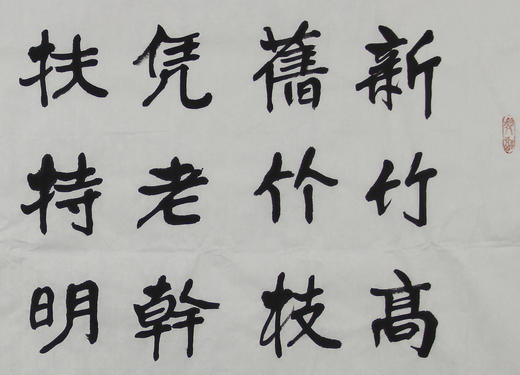 新竹高
舊竹枝
凭老幹
扶持明